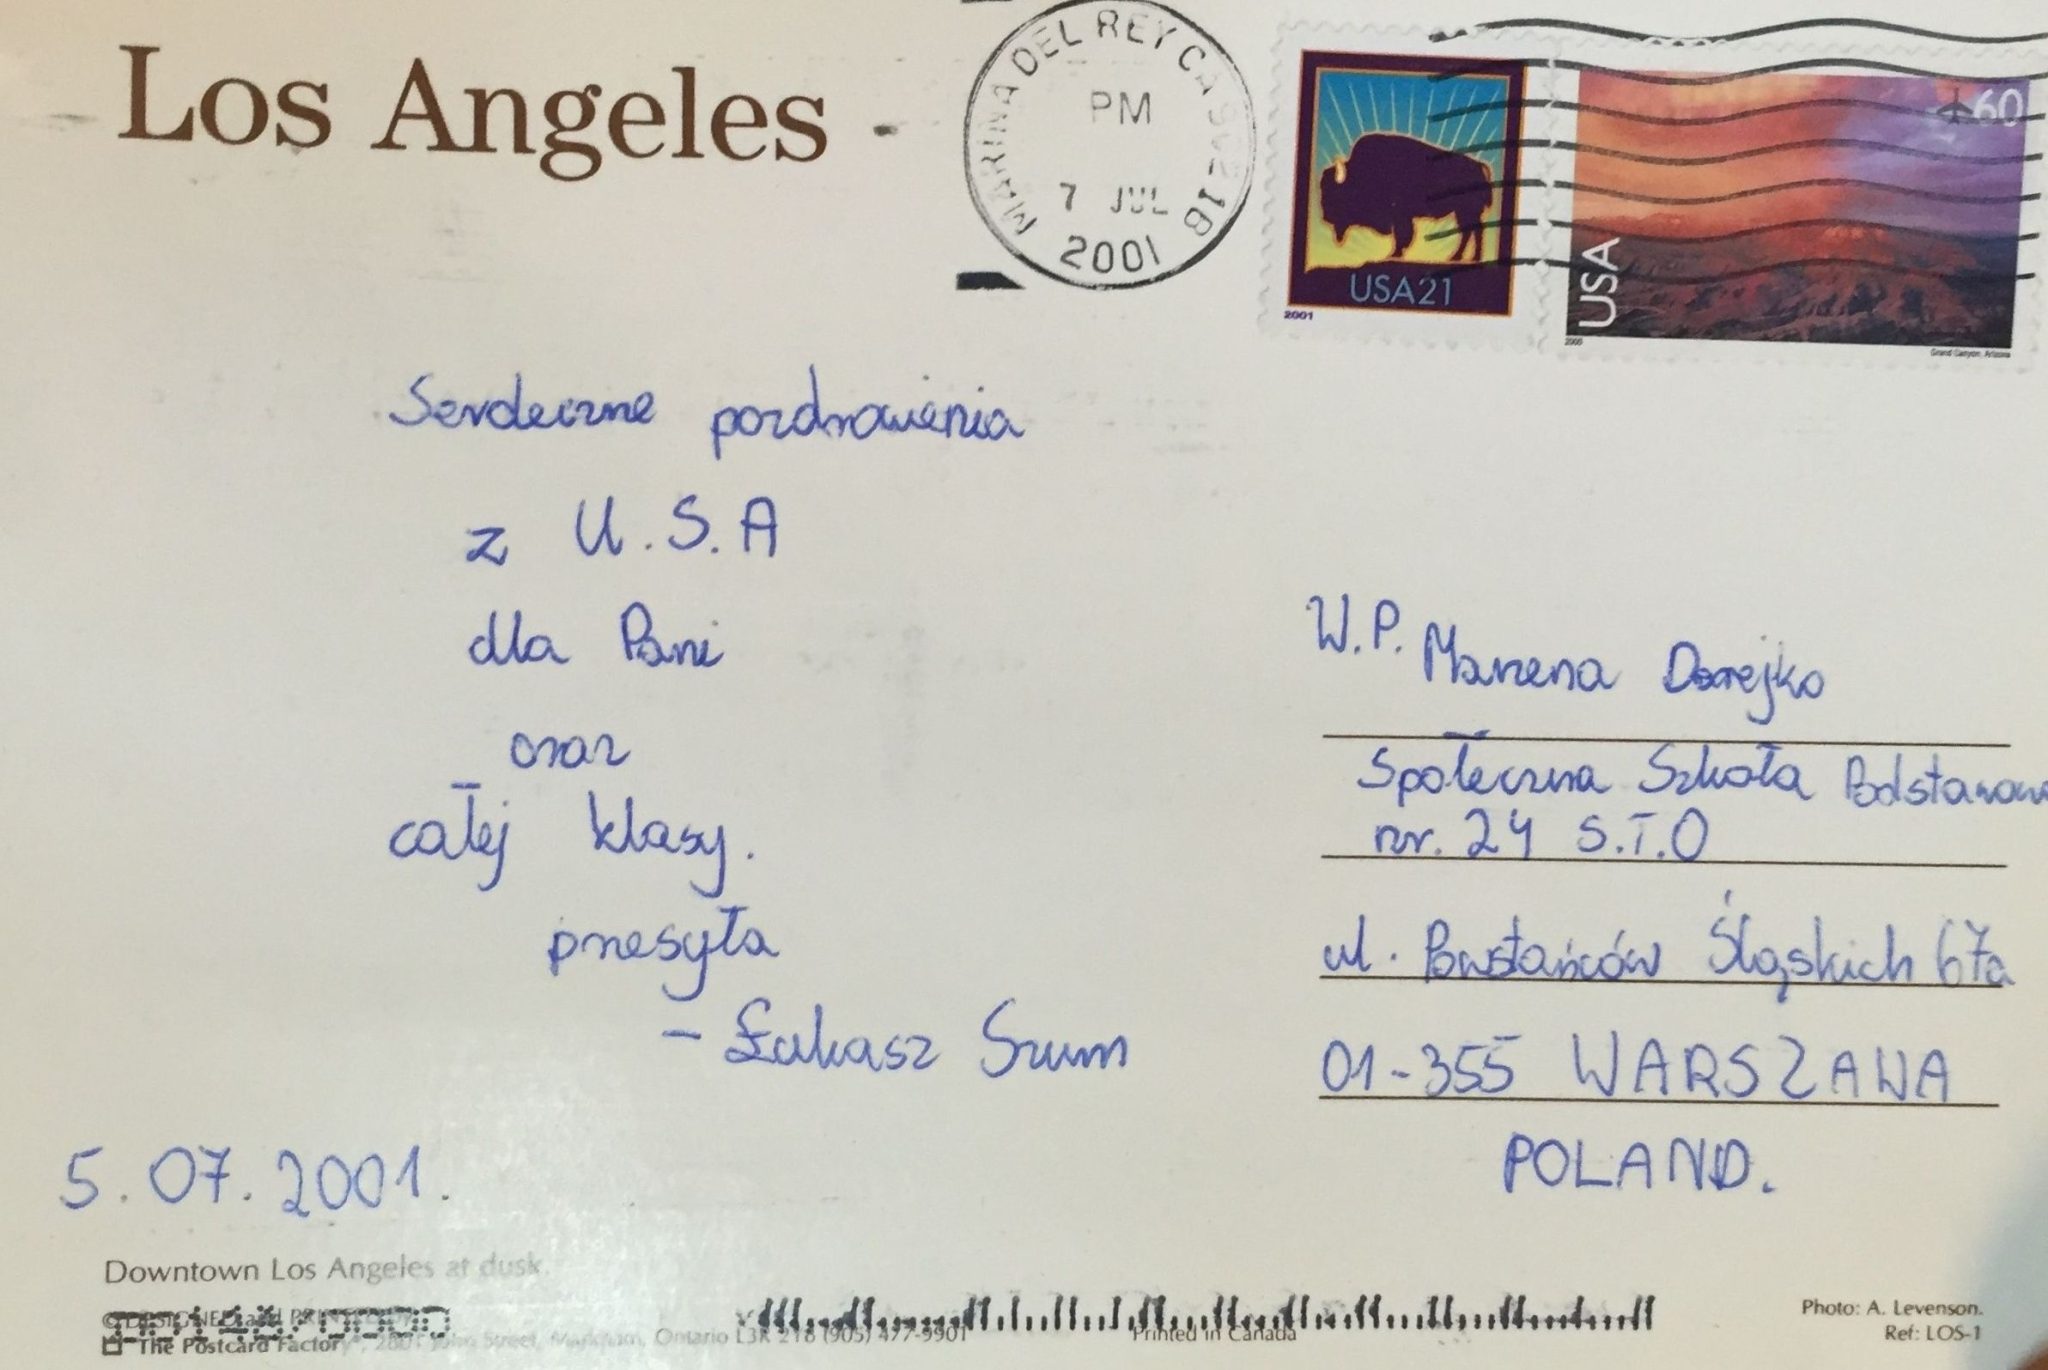 Los Angeles
MARINA DEL REY CA
PM
7 JUL
2001
USA21
2001
60
USA
2000
Grand Canyon, Arizona
Serdeczne pozdrowienia
z U.S.A
dla Pani
oraz
całej klasy.
przesyła
- Łukasz Szum
5.07.2001.
W.P. Marzena Dorejko
Społeczna Szkoła Podstawowa
nr. 24 S.T.O
ul. Powstańców Śląskich 67a
01-355 WARSZAWA
POLAND.
Downtown Los Angeles at dusk.
© DESIGNED and
The Postcard Factory, Markham, Ontario L3R 2 (905) 477-9901
Printed in Canada
Photo: A. Levenson.
Ref: LOS-1